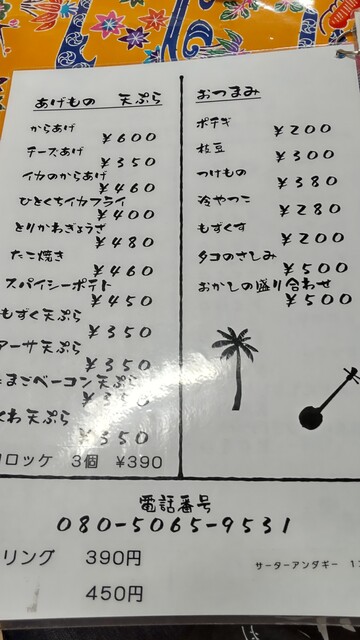 あげもの 天ぷら
からあげ
¥600
チーズあげ
¥350
イカのからあげ
¥460
ひとくちイカフライ
¥400
とりかわぎょうざ
¥480
たこ焼き
¥460
スパイシーポテト
¥450
もずく天ぷら
¥350
アーサ天ぷら
¥350
まごベーコン天ぷら
¥350
くわ天ぷら
¥350
ロッケ 3個 ¥390
おつまみ
ポテギ
¥200
枝豆
¥300
つけもの
¥380
冷やっこ
¥280
もずくす
¥200
タコのさしみ
¥500
おかしの盛り合わせ
¥500
電話番号
080-5065-9531
リング 390円
450円
サーターアンダギー 1